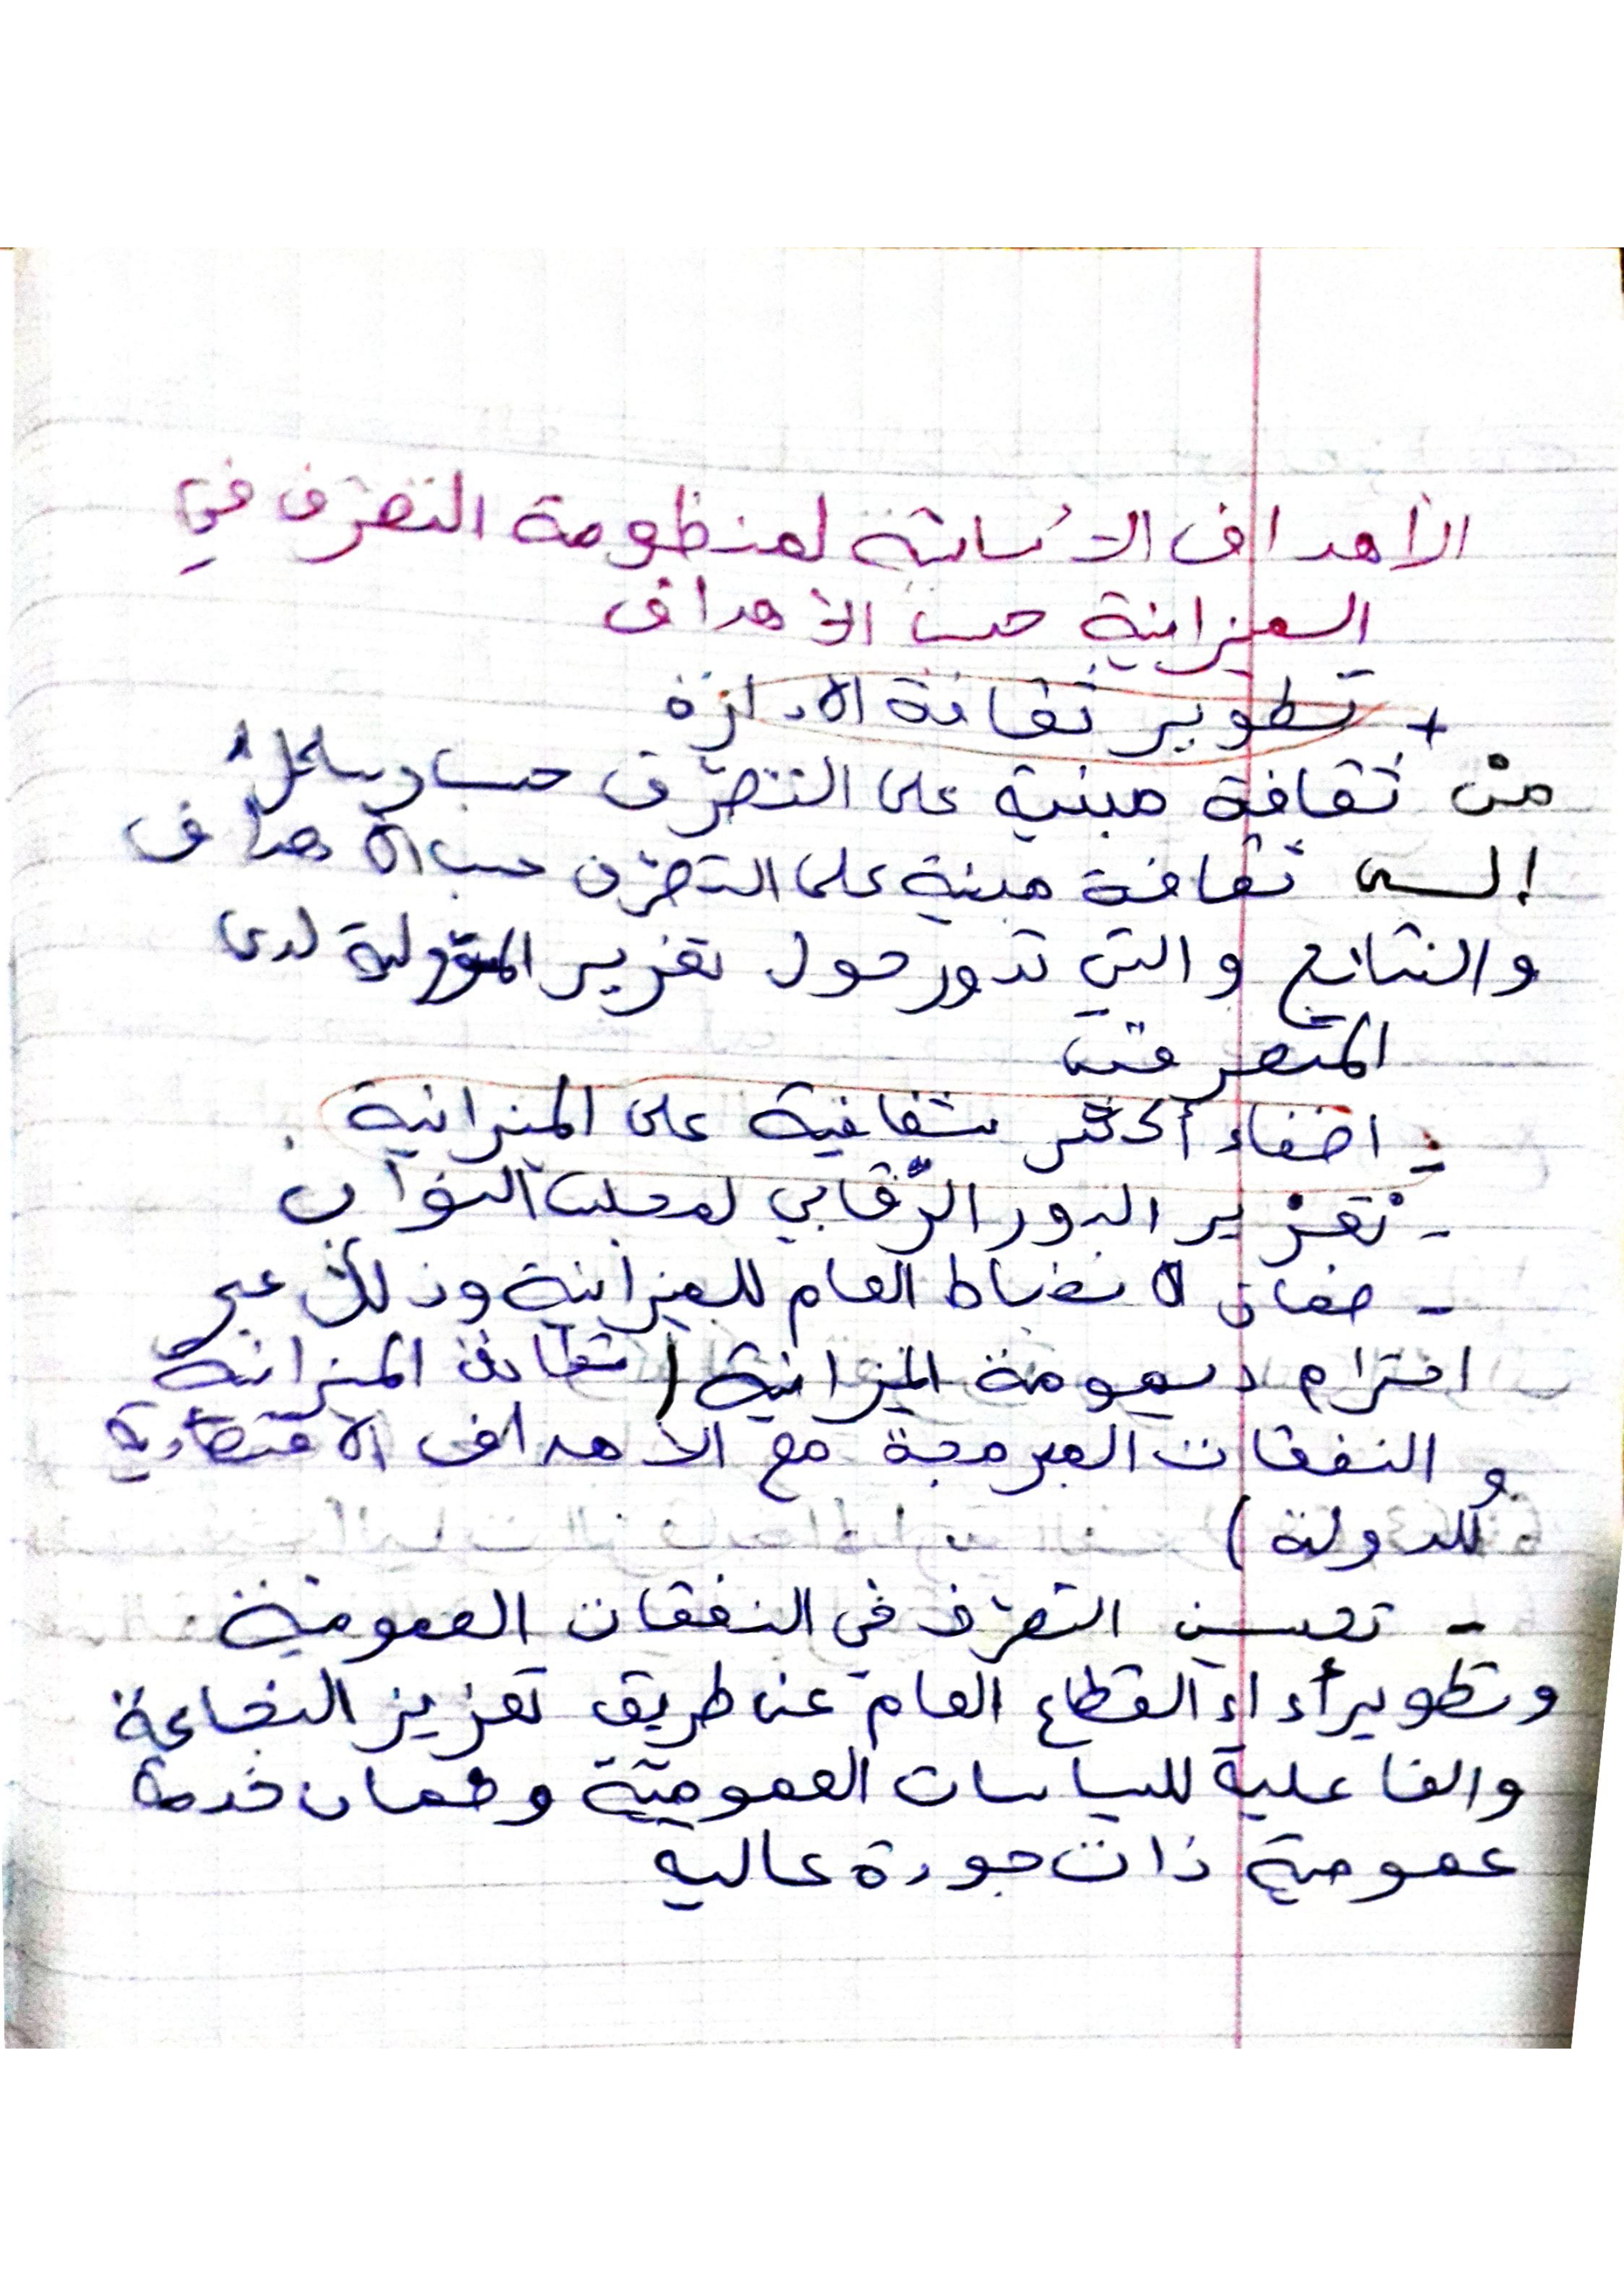 الأهداف الأساسية لمنظومة التصرف في
الميزانية حسب الأهداف
+ تطوير ثقافة الادارة
من ثقافة مبنية على التصرّف حسب وسائل
إلى ثقافة مبنية على التصرّف حسب الأهداف
والنتائج والتي تدور حول تعزيز المسؤولية لدى
المتصرفين
- اضفاء أكثر شفافية على الميزانية .
- تعزيز الدور الرّقابي لمجلس النواب
- ضمان الانضباط العام للميزانية وذلك عبر
احترام ديمومة الميزانية ( تطابق الميزانية
و النفقات المبرمجة مع الأهداف الاقتصادية
للدولة )
- تحسين التصرّف في النفقات العمومية
وتطوير أداء القطاع العام عن طريق تعزيز النجاعة
والفاعلية للسياسات العمومية وضمان خدمة
عمومية ذات جودة عالية